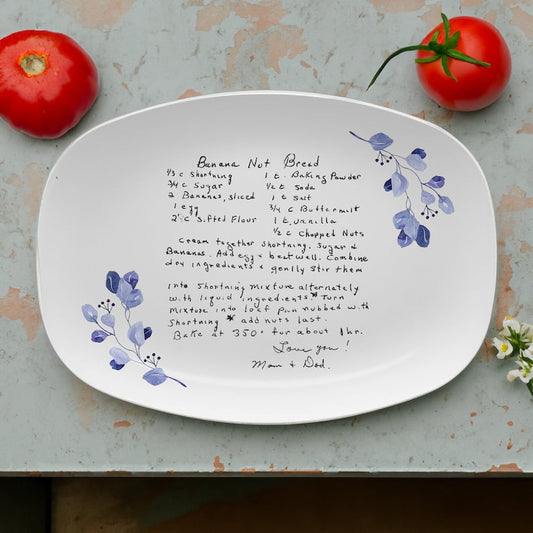 Banana Nut Bread
1/3 c Shortning 1 t. Baking Powder
3/4 c Sugar 1/2 t Soda
2 Bananas, sliced 1 t Salt
1 egg 3/4 c Buttermilk
2 c Sifted Flour 1 t. vanilla
1/2 c Chopped Nuts
Cream together Shortning, Sugar &
Bananas. Add egg & beat well. Combine
dry ingredients & gently Stir them
into Shortning mixture alternately
with liquid ingredients * Turn
mixture into loaf pan rubbed with
Shortning * add nuts last.
Bake at 350° for about 1 hr.
Love you!
Mom & Dad.